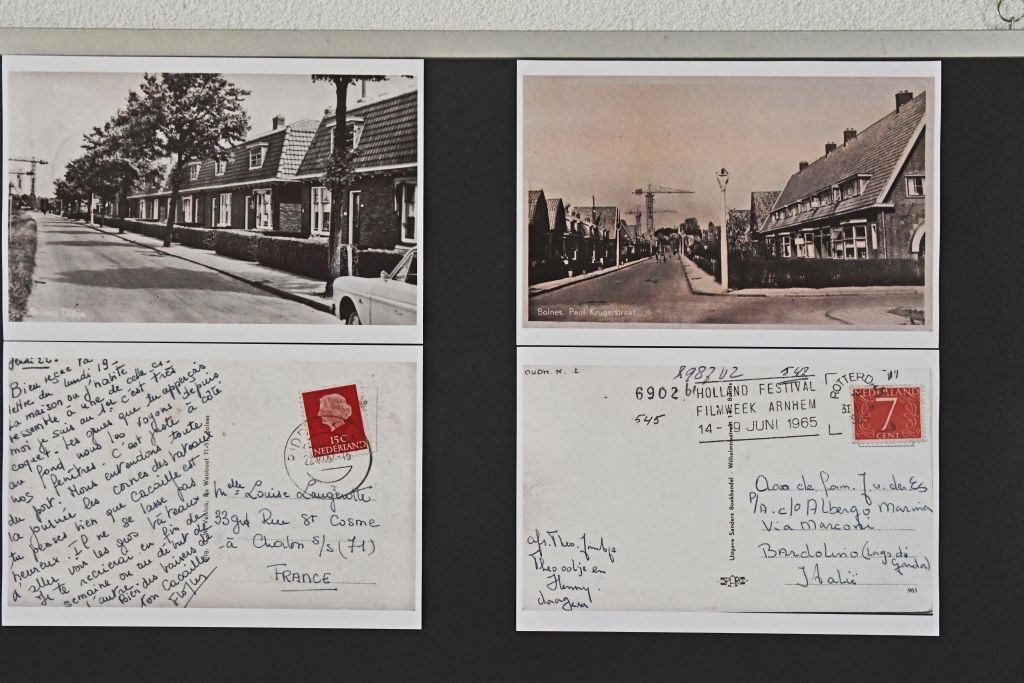 Bolnes. Paul Krugerstraat
Jeudi 22.
Bien reçue ta
lettre du lundi 19 -
La maison où j'habite
ressemble à une de celle ci -
moi je suis au fond c'est très
coquet. Les grues que tu aperçois
au fond, nous les voyons depuis
nos fenêtres. C'est juste à côté
du port. Nous entendons toute
la journée les cornes des bateaux
tu penses bien que Cacaille est
heureux. Il ne se lasse pas
d'aller voir les gros bateaux
Je te récrirai en fin de
semaine ou au début de
l'autre.
Bien des baisers de
ton Cacaille
15 C
NEDERLAND
Melle Louise
33 grd Rue St Cosme
à Chalon s/s (71)
FRANCE
OUDH. N. 2
898702 542
6902
545
HOLLAND FESTIVAL
FILMWEEK ARNHEM
14-19 JUNI 1965
ROTTERD
31
NEDERLAND
7
CENT
Uitgave Sanders Boekhandel - Wilhelmina
Aan de fam. J. v. der Es
P/A. c/o Albergo Marina
Via Marconi
Bardolino (Lago di
Garda)
Italië
afs. Theo. Jantje
Theo ooltje en
Henny.
961